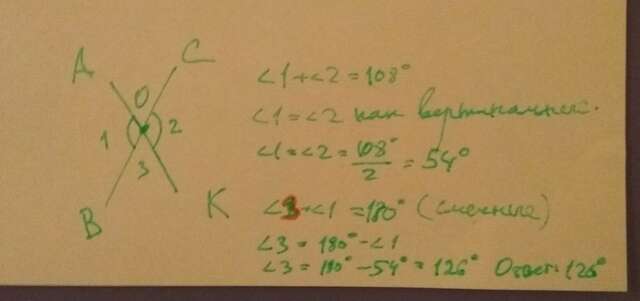 А
С
О
1
2
3
В
К
∠1+∠2=108°
∠1=∠2 как вертикальные.
∠1=∠2=108°/2=54°
∠3+∠1=180° (смежные)
∠3=180°-∠1
∠3=180°-54°=126° Ответ:126°